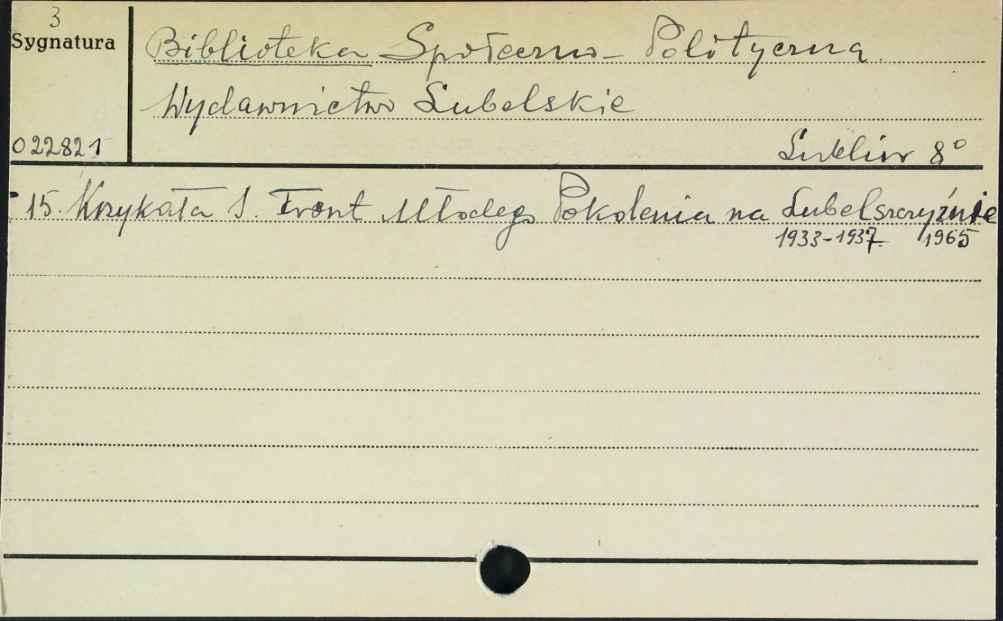 3
Sygnatura
Biblioteka Społeczno-Polityczna.
Wydawnictwo Lubelskie
022821
Lublin 8°
15. Krzykała S. Front Młodego Pokolenia na Lubelszczyźnie
1933-1937 1965